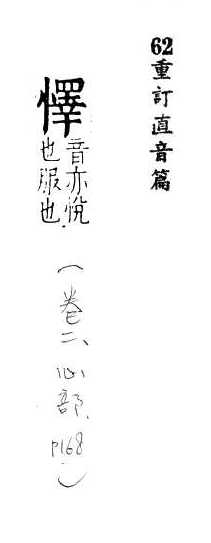 62重訂直音篇
懌音亦悅
也服也
(卷二、心部、P168)